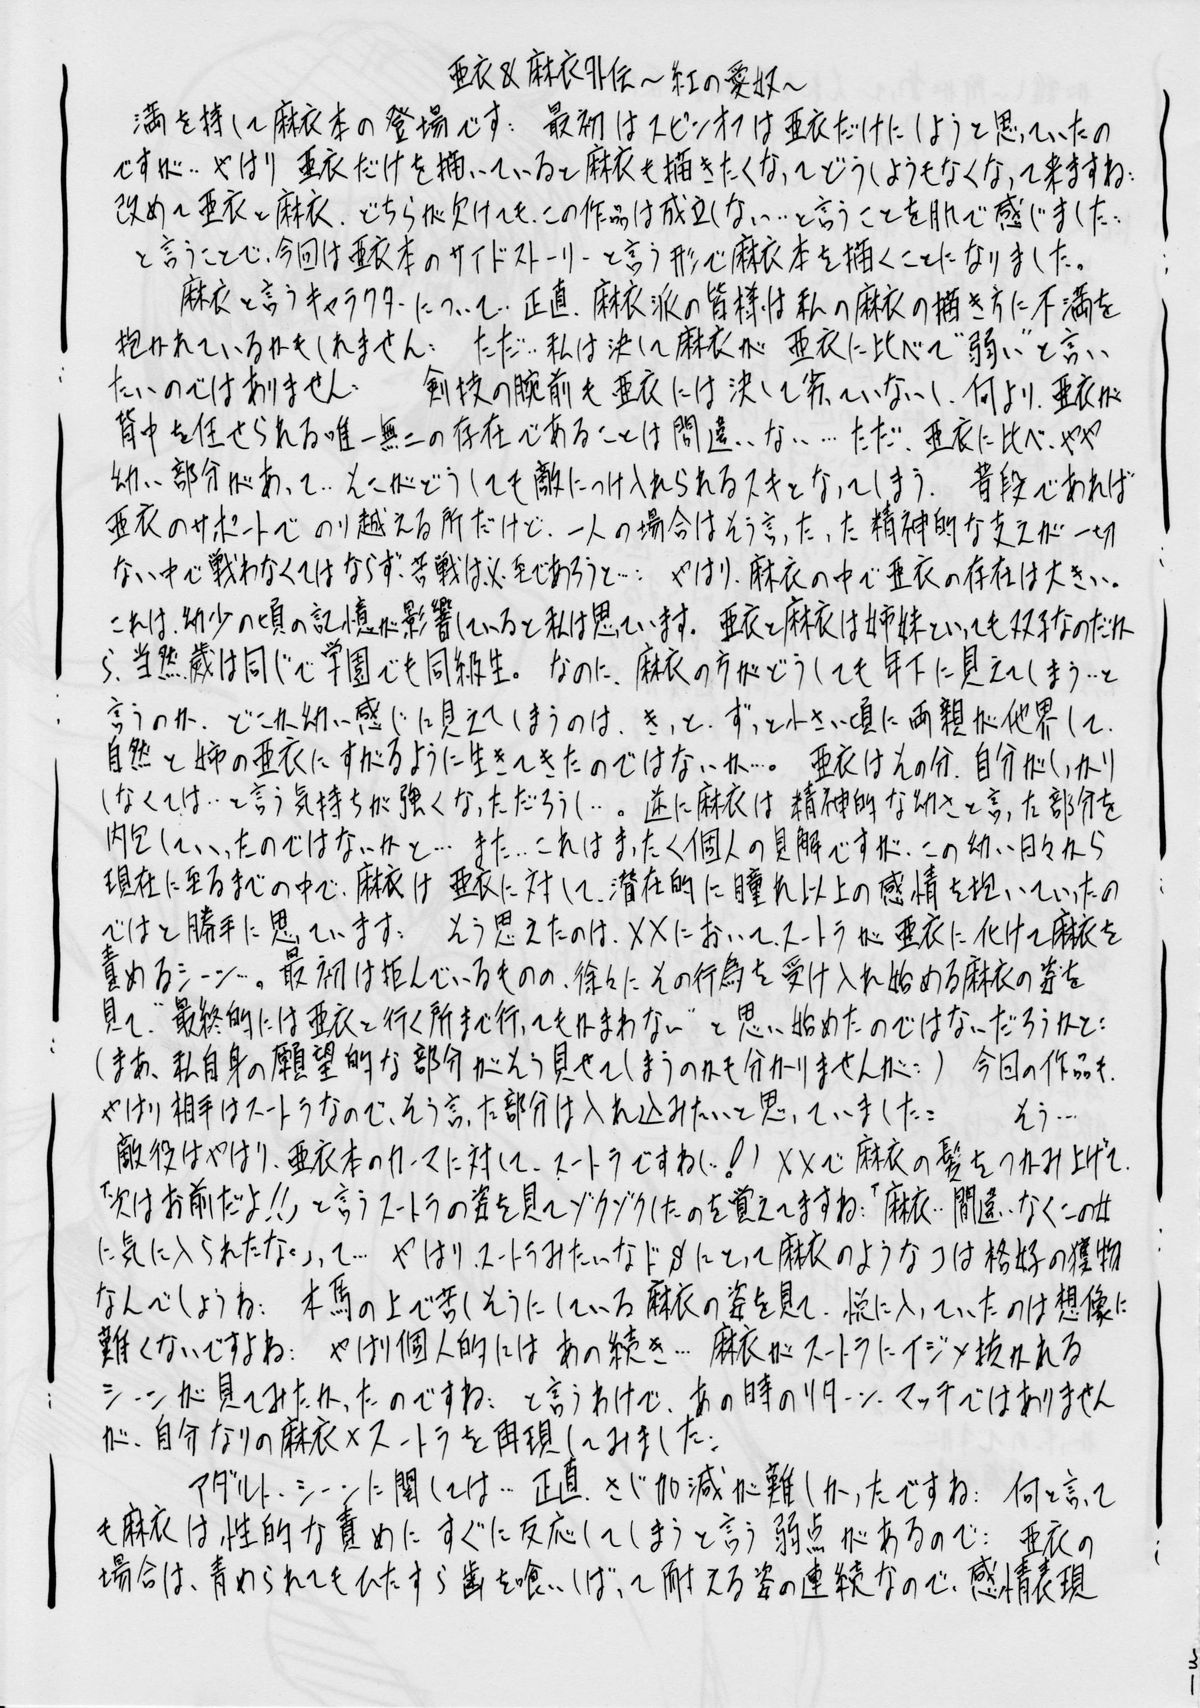 亜衣&麻衣外伝～紅の愛奴～
満を持して麻衣本の登場です: 最初はスピンオフは亜衣だけにしようと思っていたの
ですが‥やはり 亜衣だけを描いていると麻衣も描きたくなってどうしようもなくなって来ますね:
改めて亜衣と麻衣、どちらが欠けても、この作品は成立しない…と言うことを肌で感じました:
と言うことで、今回は亜衣本のサイドストーリーと言う形で麻衣本を描くことになりました。
麻衣と言うキャラクターについて… 正直、麻衣派の皆様は私の麻衣の描き方に不満を
抱かれているかもしれません: ただ‥私は決して麻衣が 亜衣に比べて"弱い"と言い
たいのではありません: 剣技の腕前も亜衣には決して劣っていないし、何より、亜衣が
背中を任せられる唯一無二の存在であることは間違いない… ただ、亜衣に比べ、やや
幼い部分があって… そこがどうしても敵につけ入れられるスキとなってしまう、 普段であれば
亜衣のサポートで のり越える所だけど、一人の場合はそう言った精神的な支えが一切
ない中で戦わなくてはならず、苦戦は必至であろうと…: やはり、麻衣の中で亜衣の存在は大きい。
これは、幼少の頃の記憶が影響していると私は思っています。 亜衣と麻衣は姉妹といっても双子なのだか
ら、当然歳は同じで学園でも同級生。 なのに、麻衣の方がどうしても年下に見えてしまう…と
言うのか、どこか幼い感じに見えてしまうのは、きっと、ずっと小さい頃に両親が他界して、
自然と姉の亜衣にすがるように生きてきたのではないか…。 亜衣はその分、自分がしっかり
しなくては…と言う気持ちが強くなっただろうし…。逆に麻衣は精神的な幼さと言った部分を
内包していったのではないかと… また‥これはまったく個人の見解ですが、この幼い日々から
現在に至るまでの中で、麻衣は亜衣に対して、潜在的に憧れ以上の感情を抱いていったの
ではと勝手に思っています: そう思えたのは、××において、スートラが亜衣に化けて麻衣を
責めるシーン…。最初は拒んでいるものの、徐々にその行為を受け入れ始める麻衣の姿を
見て、"最終的には亜衣と行く所まで行ってもかまわない"と思い始めたのではないだろうかと:
(まあ、私自身の願望的な部分がそう見せてしまうのかも分かりませんが:) 今回の作品も、
やはり相手はスートラなので、そう言った部分は入れ込みたいと思っていました: そう…
敵役はやはり、亜衣本のカーマに対して、スートラですねし‥!) ××で麻衣の髪をつかみ上げて、
「次はお前だよ!!」と言うスートラの姿を見てゾクゾクしたのを覚えてますね:「麻衣‥間違いなくこの女
に気に入られたな。」って… やはり、スートラみたいなドSにとって麻衣のようなコは格好の獲物
なんでしょうね: 木馬の上で苦しそうにしている麻衣の姿を見て、悦に入っていたのは想像に
難くないですよね: やはり個人的には あの続き… 麻衣がスートラにイジメ抜かれる
シーンが見てみたかったのですね: と言うわけで、あの時のリターン、マッチではありません
が、自分なりの麻衣×スートラを再現してみました:
アダルト、シーンに関しては… 正直、さじ加減が難しかったですね: 何と言って
も麻衣は、性的な責めに すぐに反応してしまうと言う弱点があるので: 亜衣の
場合は、責められてもひたすら歯を喰いしばって耐える姿の連続なので、感情表現
31